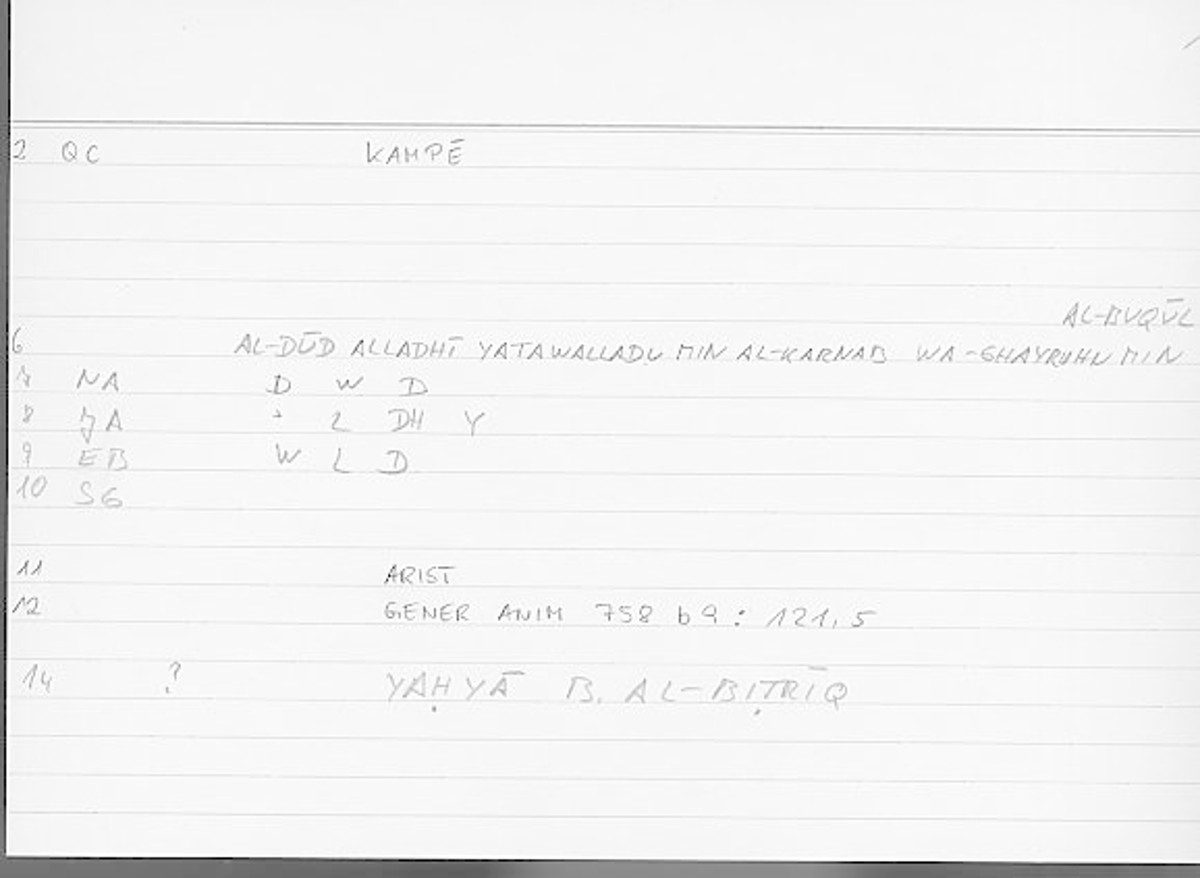 2 QC KAMPĒ
AL-BUQŪL
6 AL-DŪD ALLADHĪ YATAWALLADU MIN AL-KARNAB WA-GHAYRUHU MIN
7 NA D W D
8 JA ʾ L DH Y
9 EB W L D
10 SG
11 ARIST
12 GENER ANIM 758 b 9 : 121,5
14 ? YAḤYĀ B. AL-BIṬRĪQ